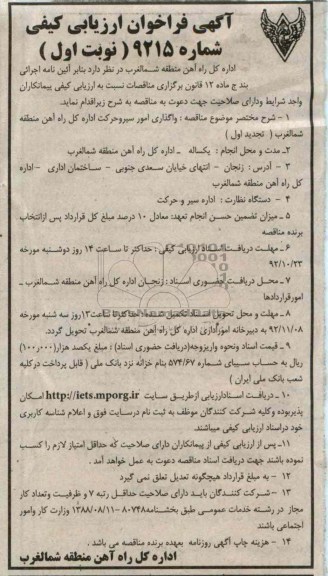 آگهی فراخوان ارزیابی کیفی
شماره ۹۲۱۵ ( نوبت اول )
اداره کل راه آهن منطقه شمالغرب در نظر دارد بنابر آئین نامه اجرائی
بند ج ماده ۱۲ قانون برگزاری مناقصات نسبت به ارزیابی کیفی پیمانکاران
واجد شرایط ودارای صلاحیت جهت دعوت به مناقصه به شرح زیراقدام نماید.
۱ - شرح مختصر موضوع مناقصه : واگذاری امور سیروحرکت اداره کل راه آهن منطقه
شمالغرب ( تجدید اول )
۲- مدت و محل انجام : یکساله - اداره کل راه آهن منطقه شمالغرب
۳ - آدرس : زنجان - انتهای خیابان سعدی جنوبی - ساختمان اداری - اداره
کل راه آهن منطقه شمالغرب
۴ - دستگاه نظارت : اداره سیر و حرکت
۵ - میزان تضمین حسن انجام تعهد: معادل ۱۰ درصد مبلغ کل قرارداد پس ازانتخاب
برنده مناقصه
۶ - مهلت دریافت اسناد ارزیابی کیفی : حداکثر تا ساعت ۱۴ روز دوشنبه مورخه
۹۲/۱۰/۲۳
۷ - محل دریافت حضوری اسناد : زنجان اداره کل راه آهن منطقه شمالغرب -
امورقراردادها
۸ - مهلت و محل تحویل اسناد تکمیل شده: حداکثر تا ساعت ۱۳ روز سه شنبه مورخه
۹۲/۱۱/۰۸ به دبیرخانه اموراداری اداره کل راه آهن منطقه شمالغرب تحویل گردد.
۹ - قیمت اسناد ونحوه واریزوجه(دریافت حضوری اسناد) : مبلغ یکصد هزار(۱۰۰٫۰۰۰)
ریال به حساب سیبای شماره ۵۷۴/۶۷ بنام خزانه نزد بانک ملی ( قابل پرداخت درکلیه
شعب بانک ملی ایران )
۱۰ - دریافت اسنادارزیابی ازطریق سایت http://iets.mporg.ir امکان
پذیربوده وکلیه شرکت کنندگان موظف به ثبت نام درسایت فوق و اعلام شناسه کاربری
خود دراسناد ارزیابی کیفی میباشند.
۱۱- پس از ارزیابی کیفی از پیمانکاران دارای صلاحیت که حداقل امتیاز لازم را کسب
نموده باشند جهت دریافت اسناد مناقصه دعوت به عمل خواهد آمد .
۱۲ - به مبلغ قرارداد هیچگونه تعدیل تعلق نمی گیرد
۱۳ - شرکت کنندگان باید دارای صلاحیت حداقل رتبه ۷ و ظرفیت وتعداد کار
مجاز در رشته خدمات عمومی طبق بخشنامه ۸۰۷۴۸ - ۱۳۸۸/۰۸/۱۱ وزارت کار وامور
اجتماعی باشند
۱۴ - هزینه چاپ آگهی روزنامه بعهده برنده مناقصه می باشد .
اداره کل راه آهن منطقه شمالغرب